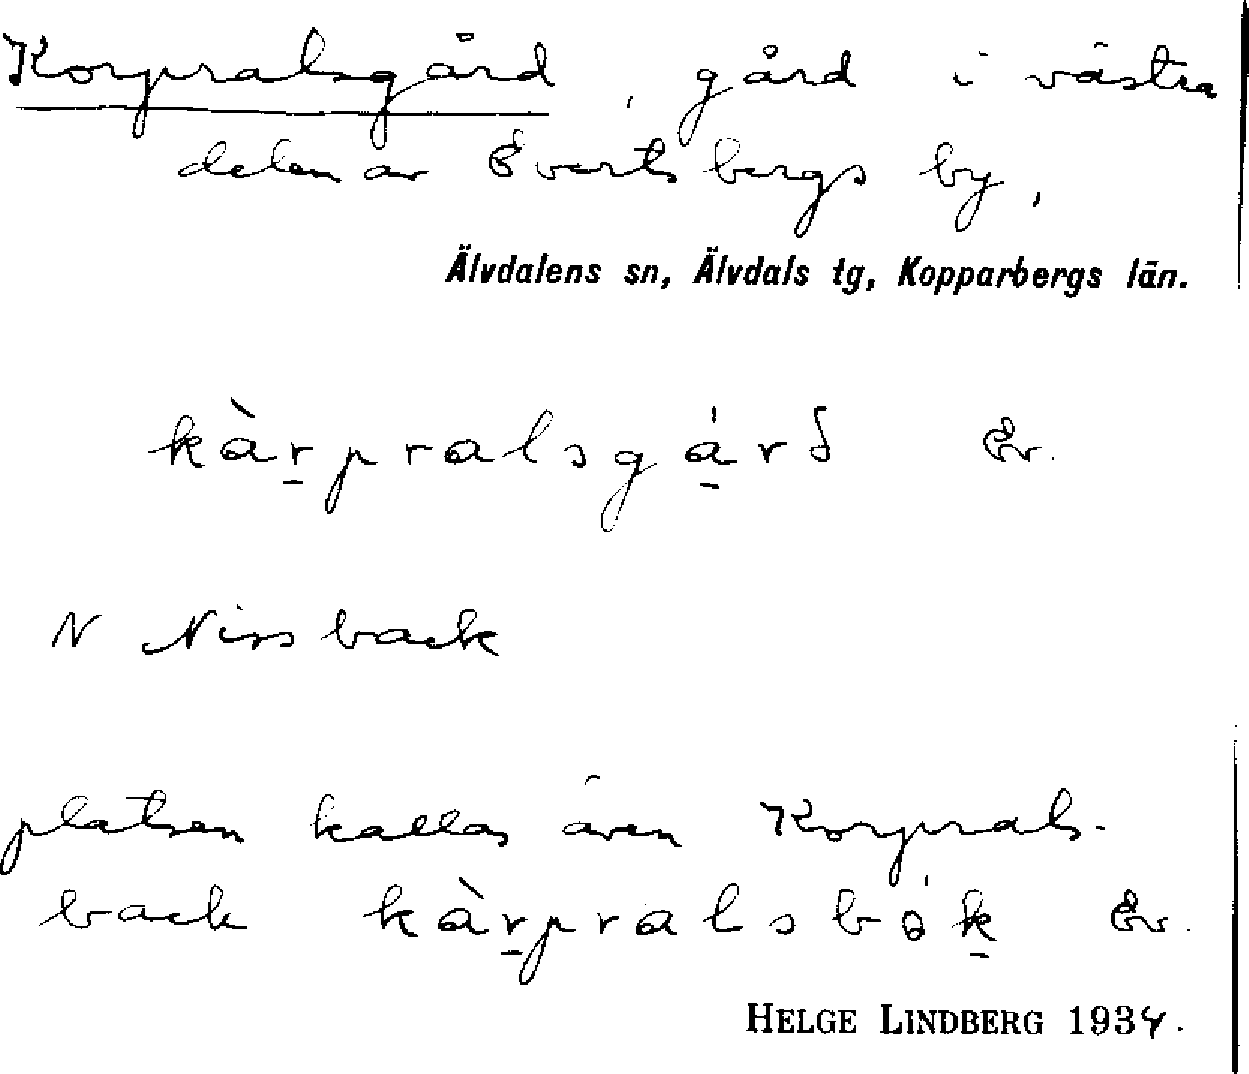 Korpralsgård, gård i västra
delen av Evertsbergs by,
Älvdalens sn, Älvdals tg, Kopparbergs län.
kàr̠pralsgá̠rd Ev.
N Nissback
platsen kallas även Korprals-
back kàr̠pralsbók̠ Ev.
HELGE LINDBERG 1934.